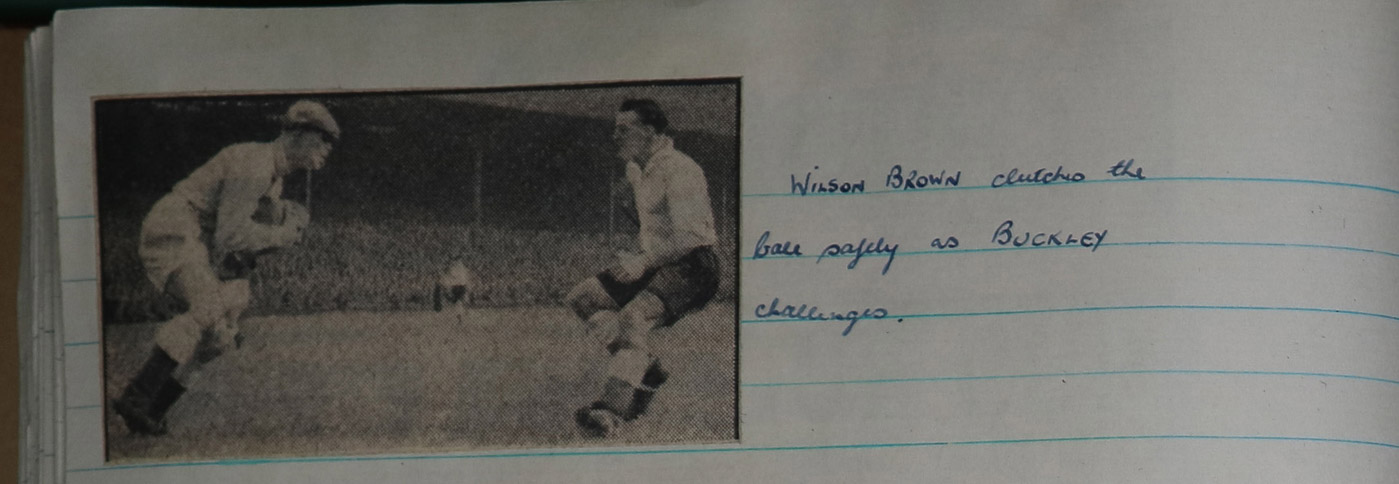 WILSON BROWN clutches the
ball safely as BUCKLEY
challenges.